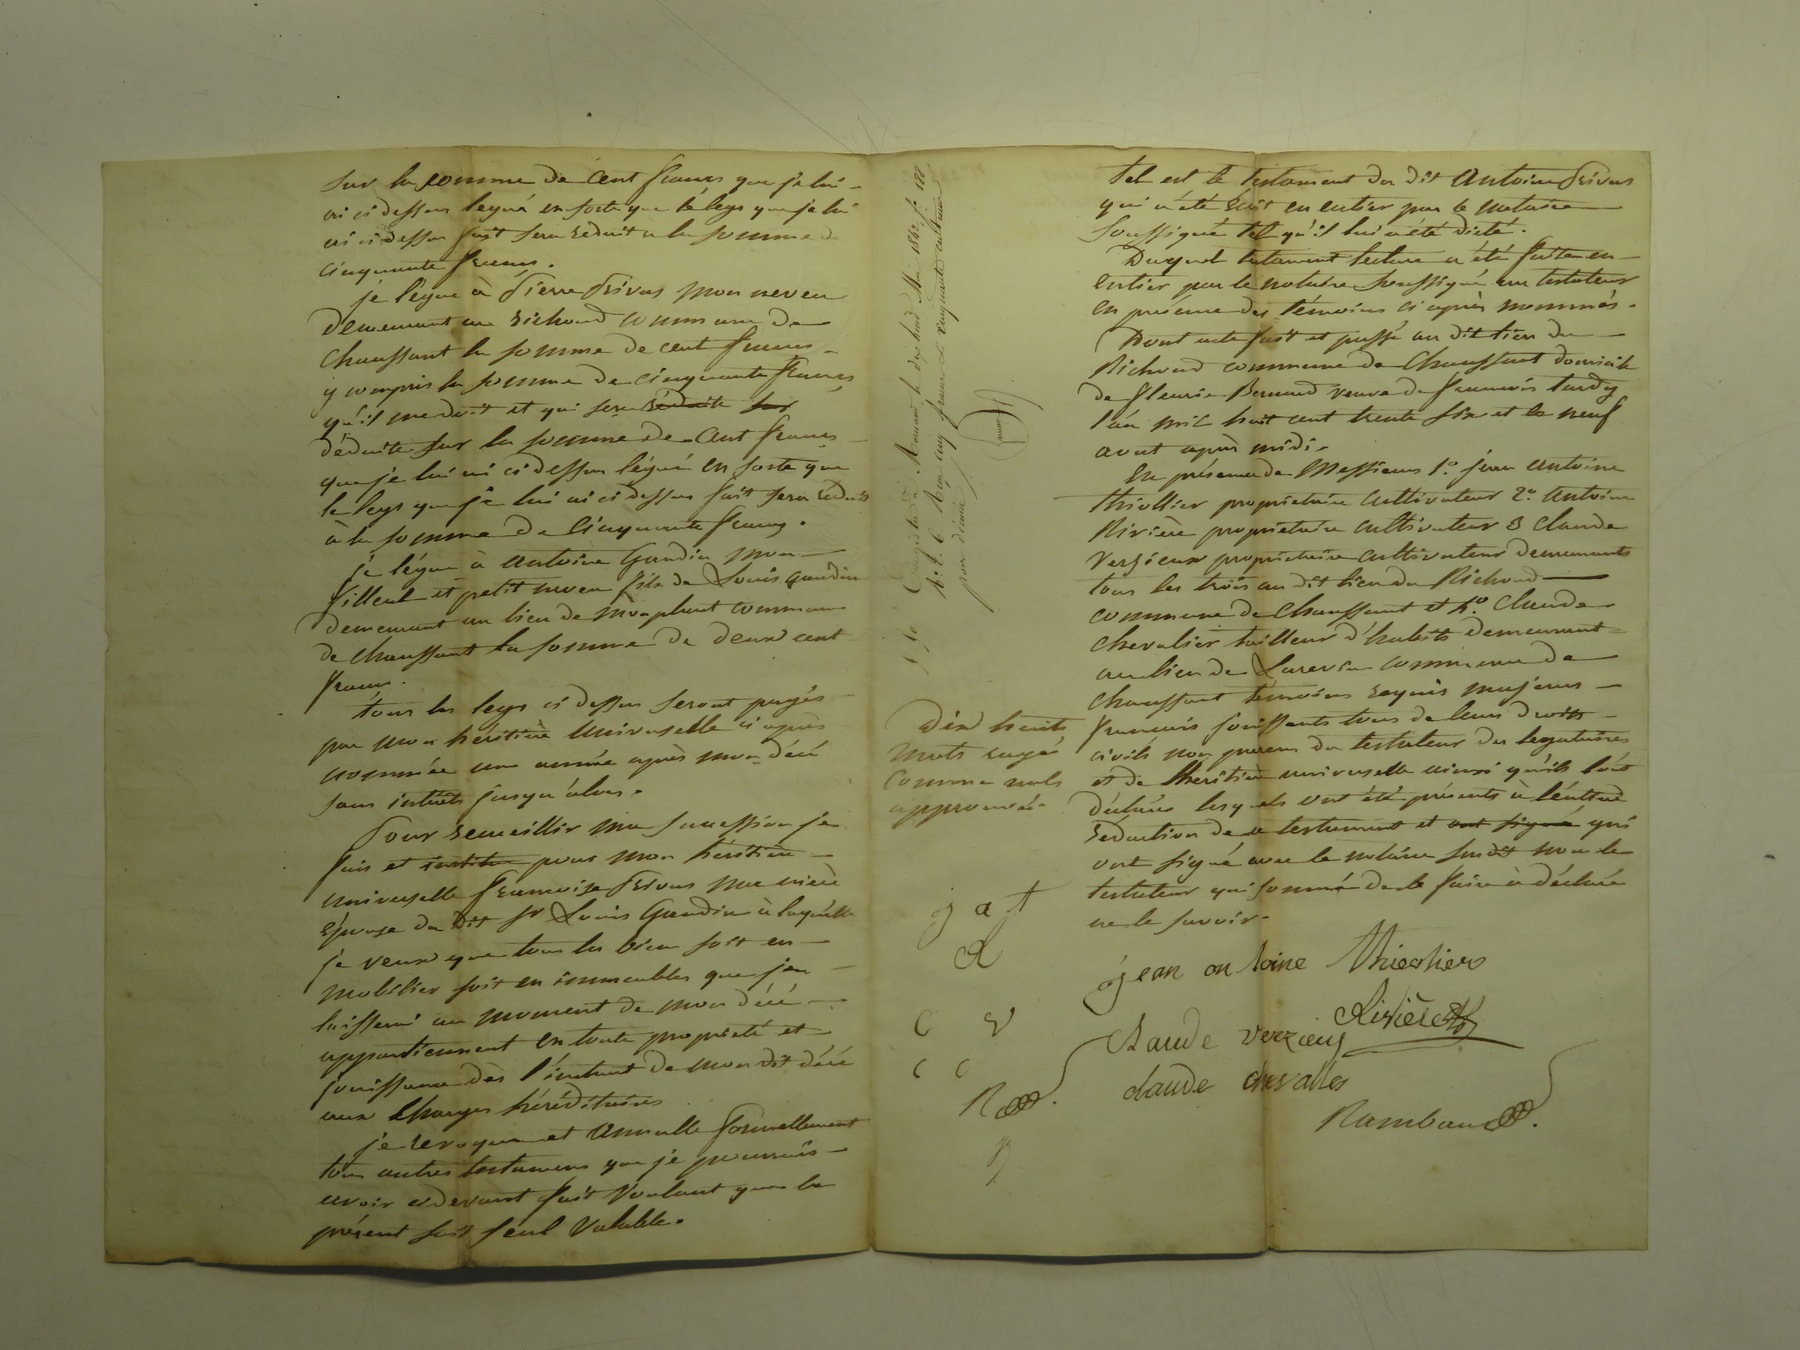 sur la somme de cent francs que je lui
ai ci dessus légué en sorte que le legs que je lui
ai ci dessus fait sera réduit a la somme de
cinquante francs.
je lègue à Pierre Privas mon neveu
demeurant au Richoud commune de
Chaussant la somme de cent francs
y compris la somme de cinquante francs
qu'il me doit et qui sera réduite sur
déduite sur la somme de cent francs
que je lui ai ci dessus légué en sorte que
le legs que je lui ai ci dessus fait sera réduit
à la somme de cinquante francs.
je lègue à Antoine Gaudin mon
filleul et petit neveu fils de Louis Gaudin
demeurant au lieu de commune
de Chaussant la somme de deux cent
francs.
tous les legs ci dessus seront payés
par mon héritière universelle ci après
nommée une année après mon décé
sans intérêts jusqu'alors.
Pour recueillir ma succession je
fais et institue pour mon héritière
universelle Françoise Privas ma nièce
épouse du dit sr Louis Gaudin à laquelle
je veux que tous les bien soit en
mobilier soit en immeubles que j'en
laisserai au moment de mon décé
appartiennent en toute propriété et
jouissance dès l'instant de mon dit décé
aux charges héréditaires
je revoque et annulle formellement
tous autres testamens que je pourrais
avoir cidevant fait voulant que le
présent soit seul valable.
Enregistré à Mornant le dix huit Mai 1862 f°
R. C. cinq francs & cinquante centimes
pour décime
Dix huits
mots rayés
comme nuls
approuvés.
j a t
R
C V
C C
R
tel est le testament du dit Antoine Privas
qui a été écrit en entier par le notaire
soussigné tel qu'il lui a été dicté.
Duquel testament lecture a été faite en
entier par le notaire soussigné au testateur
en présence des témoins ci après nommés.
Dont acte fait et passé au dit lieu du
Richoud commune de Chaussant domicile
de fleurie Bernard veuve de francois tardy
l'an mil huit cent trente six et le neuf
aout après midi.
En présence de Messieurs 1.° jean antoine
thiollier propriétaire cultivateur 2.° antoine
Rivière propriétaire cultivateur 3 claude
verzieux propriétaire cultivateur demeurants
tous les trois au dit lieu du Richoud
commune de Chaussant et 4.° claude
chevalier tailleur d'habits demeurant
au lieu de commune de
Chaussant témoins requis majeurs
francais jouissants tous de leurs droits
civils non parens du testateur des legataires
et de lheritière universelle ainsi qu'ils l'ont
déclaré lesquels ont été présents à l'entière
rédaction de ce testament et ont signé qui
ont signé avec le notaire susdit non le
testateur qui sommé de le faire à déclaré
ne le savoir.
jean antoine Thiollier
Rivière
Claude verzieux
claude chevallier
Rambaud